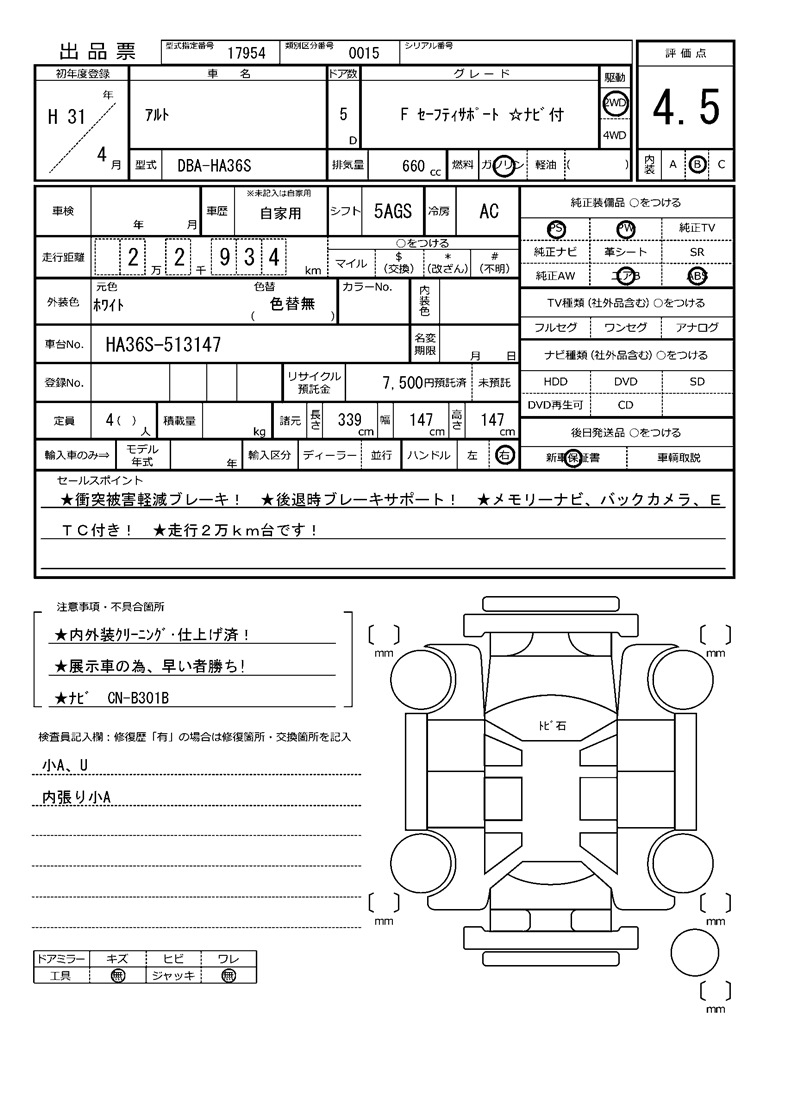 出品票 型式指定番号 17954 類別区分番号 0015 シリアル番号
評価点
4.5
内装 A B C
初年度登録 車名 ドア数 グレード 駆動
H 31 年 4 月 アルト 5 D F セーフティサポート ☆ナビ付 2WD 4WD
型式 DBA-HA36S 排気量 660 cc 燃料 ガソリン 軽油 ( )
車検 年 月 車歴 ※未記入は自家用 自家用 シフト 5AGS 冷房 AC
走行距離 2 万 2 千 9 3 4 km ○をつける マイル $ (交換) * (改ざん) # (不明)
外装色 元色 ホワイト 色替 ( 色替無 ) カラーNo. 内装色
車台No. HA36S-513147 名変期限 月 日
登録No. リサイクル預託金 7,500円預託済 未預託
定員 4 ( ) 人 積載量 kg 諸元 長さ 339 cm 幅 147 cm 高さ 147 cm
輸入車のみ⇒ モデル年式 年 輸入区分 ディーラー 並行 ハンドル 左 右
純正装備品 ○をつける
PS PW 純正TV
純正ナビ 革シート SR
純正AW エアB ABS
TV種類 (社外品含む) ○をつける
フルセグ ワンセグ アナログ
ナビ種類 (社外品含む) ○をつける
HDD DVD SD
DVD再生可 CD
後日発送品 ○をつける
新車保証書 車輌取説
セールスポイント
★衝突被害軽減ブレーキ! ★後退時ブレーキサポート! ★メモリーナビ、バックカメラ、E
TC付き! ★走行2万km台です!
注意事項・不具合箇所
★内外装クリーニング・仕上げ済!
★展示車の為、早い者勝ち!
★ナビ CN-B301B
検査員記入欄:修復歴「有」の場合は修復箇所・交換箇所を記入
小A、U
内張り小A
ドアミラー キズ ヒビ ワレ
工具 無 ジャッキ 無
mm mm
トビ石
mm mm
mm